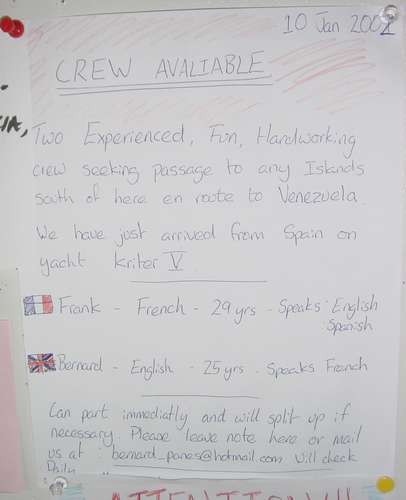 10 Jan 2002
CREW AVALIABLE
Two Experienced, Fun, Hardworking
crew seeking passage to any Islands
south of here en route to Venezuela.
We have just arrived from Spain on
yacht Kriter V.
Frank - French - 29 yrs - Speaks: English
Spanish
Bernard - English - 25 yrs - Speaks French
Can part immediatly and will split up if
necessary. Please leave note here or mail
us at : bernard_panes@hotmail.com Will check
Daily
ATTENTION!!!